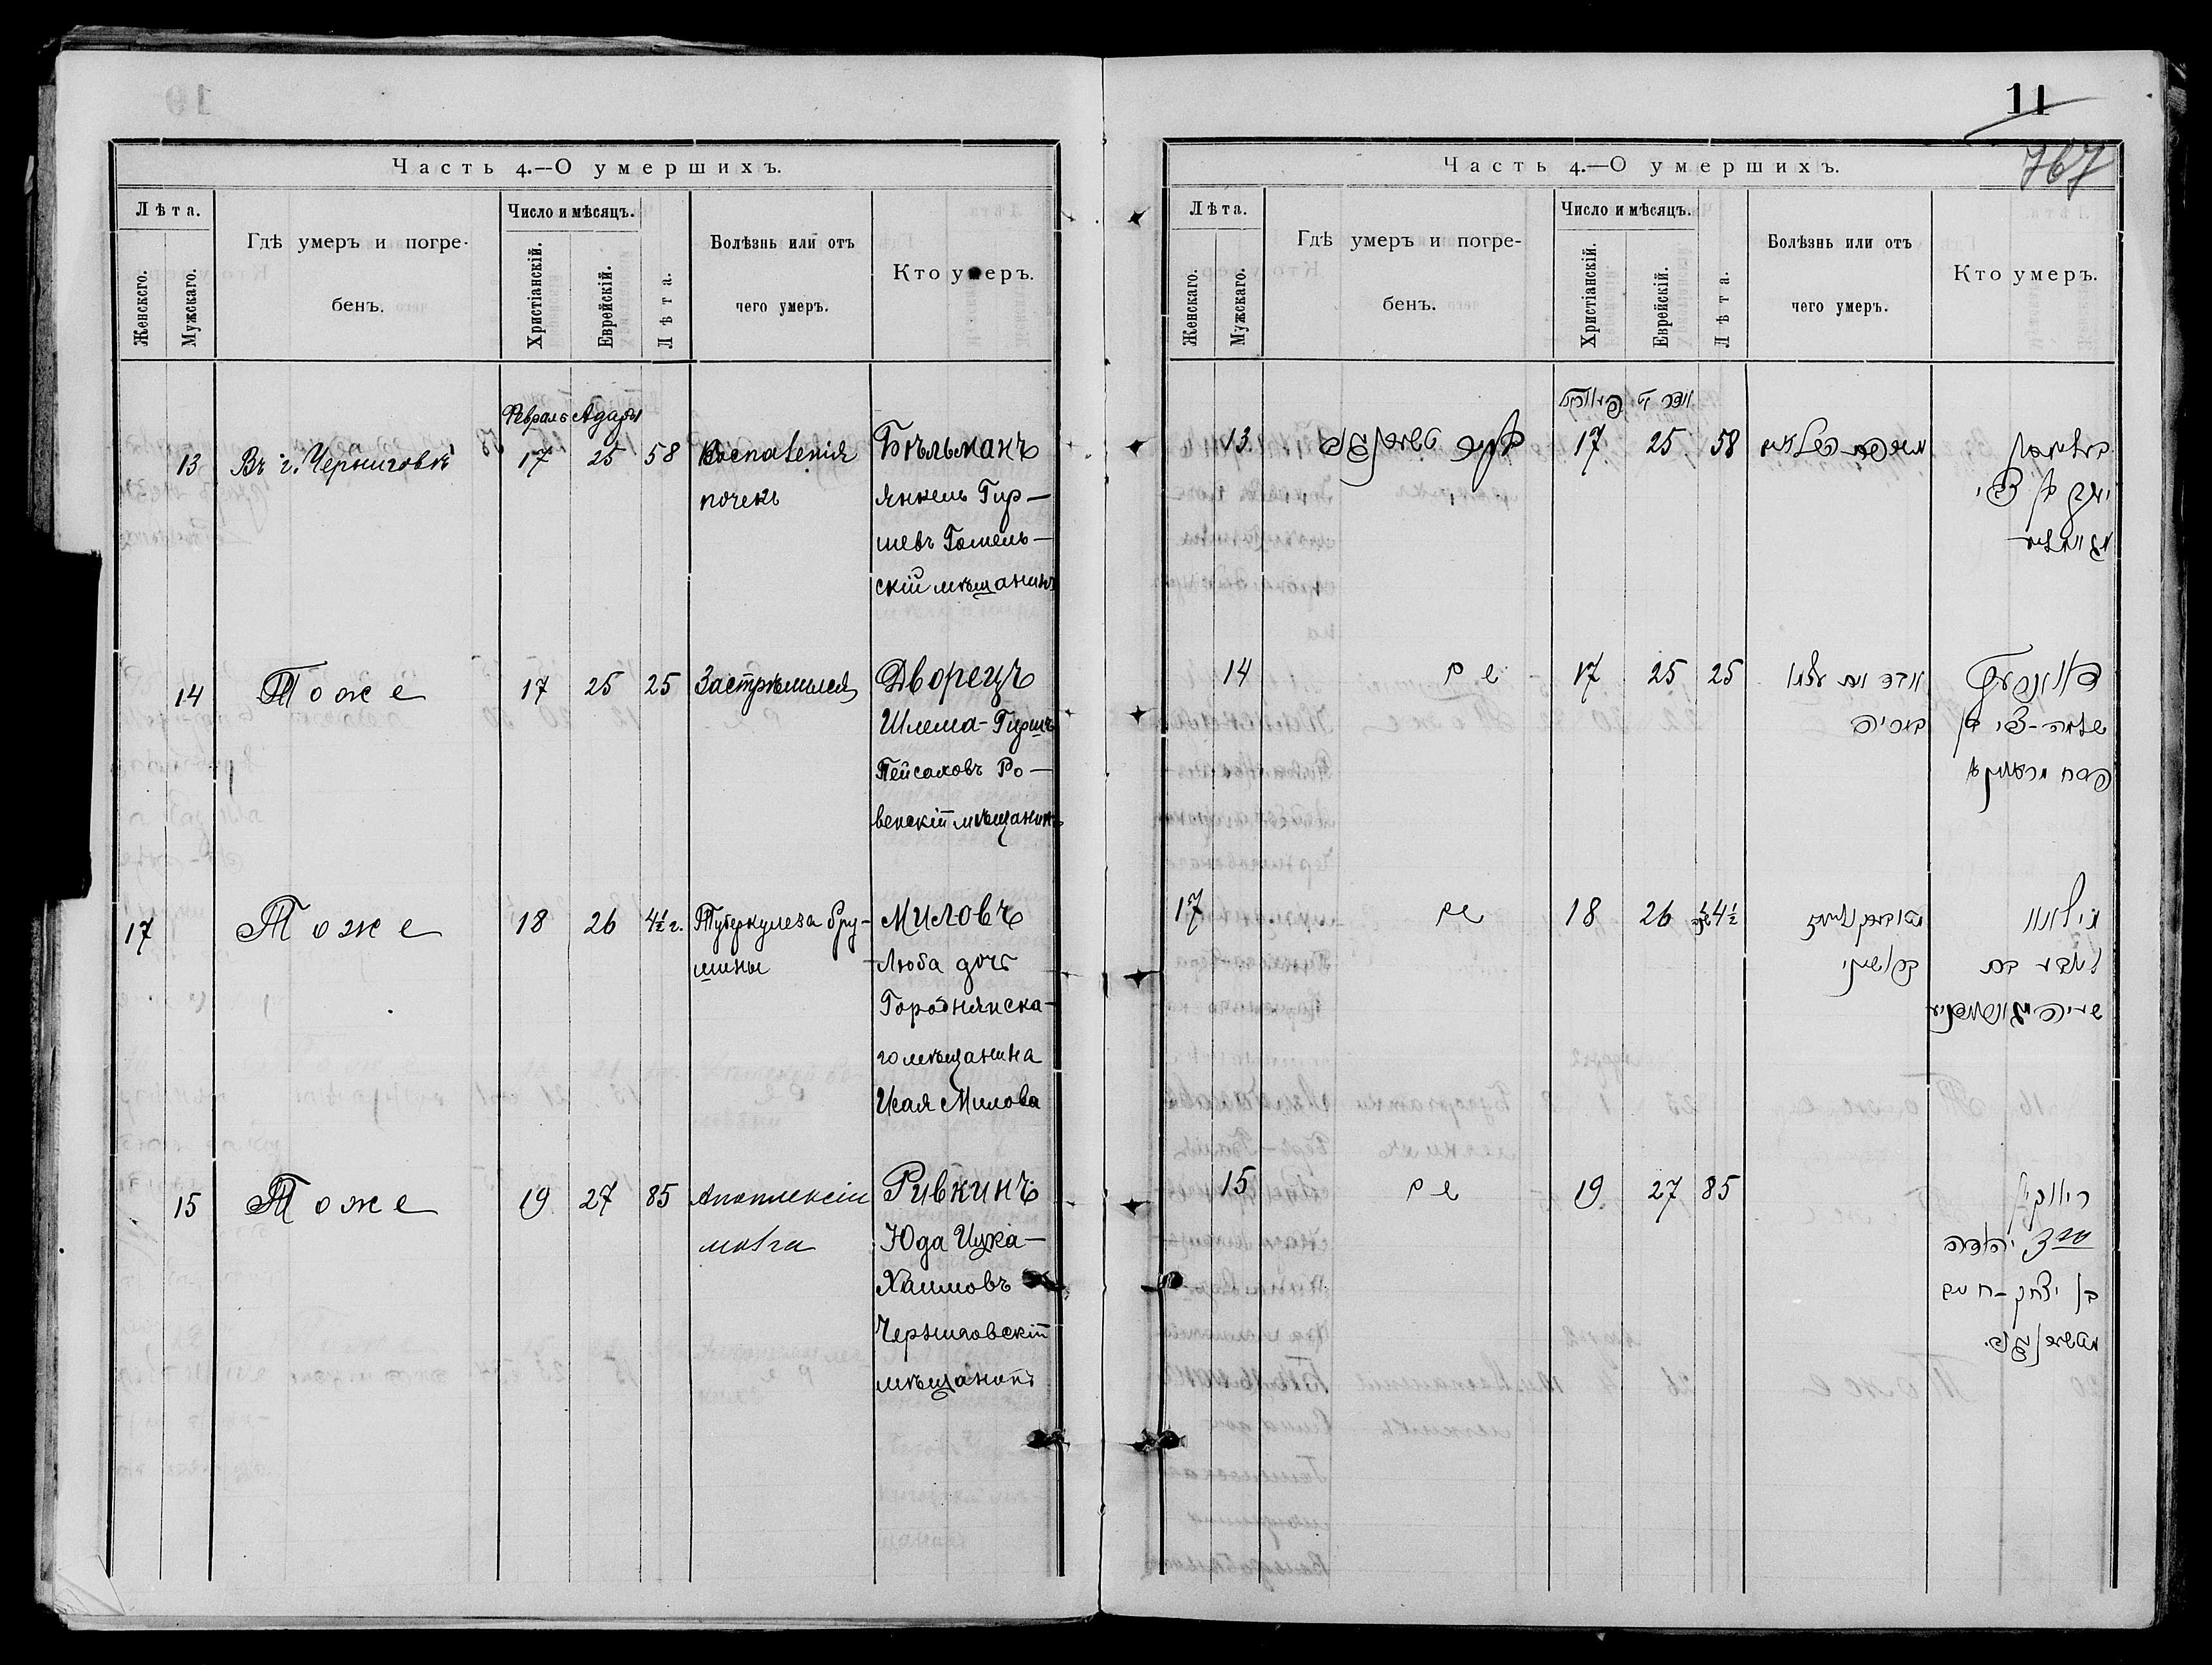 Часть 4.—О умершихъ.
Лѣта.
Женскго.
Мужскаго.
Гдѣ умеръ и погре-
бенъ.
Число и мѣсяцъ.
Христіанскій.
Еврейскій.
Лѣта.
Болѣзнь или отъ
чего умеръ.
Кто умеръ.
Февраль Адаръ
13 Въ г. Черниговѣ 17 25 58 Воспаленія
почекъ
Бѣльманъ
Янкель Гир-
шевъ Гомель-
скій мѣщанинъ
14 Тоже 17 25 25 Застрѣлился
Дворецъ
Шлема-Гиршъ
Пейсаховъ Ро-
венскій мѣщанинъ
17 Тоже 18 26 4½ г. Туберкулеза брю-
шины
Миловъ
Люба дочь
Городнянска-
го мѣщанина
Исая Милова
15 Тоже 19 27 85 Апоплексіи
мозга
Ривкинъ
Юда Ицка-
Хаимовъ
Черниговскій
мѣщанинъ
11
767
Часть 4.—О умершихъ.
Лѣта.
Женскаго.
Мужскаго.
Гдѣ умеръ и погре-
бенъ.
Число и мѣсяцъ.
Христіанскій.
Еврейскій.
Лѣта.
Болѣзнь или отъ
чего умеръ.
Кто умеръ.
13 17 25 58
יעקב בן צבי
14 שם 17 25 25
שלמה-צבי בן
פסח
17 שם 18 26 4½
מילאוו
ליובא בת
15 שם 19 27 85
ריווקין
יהודה
בן יצחק-חיים